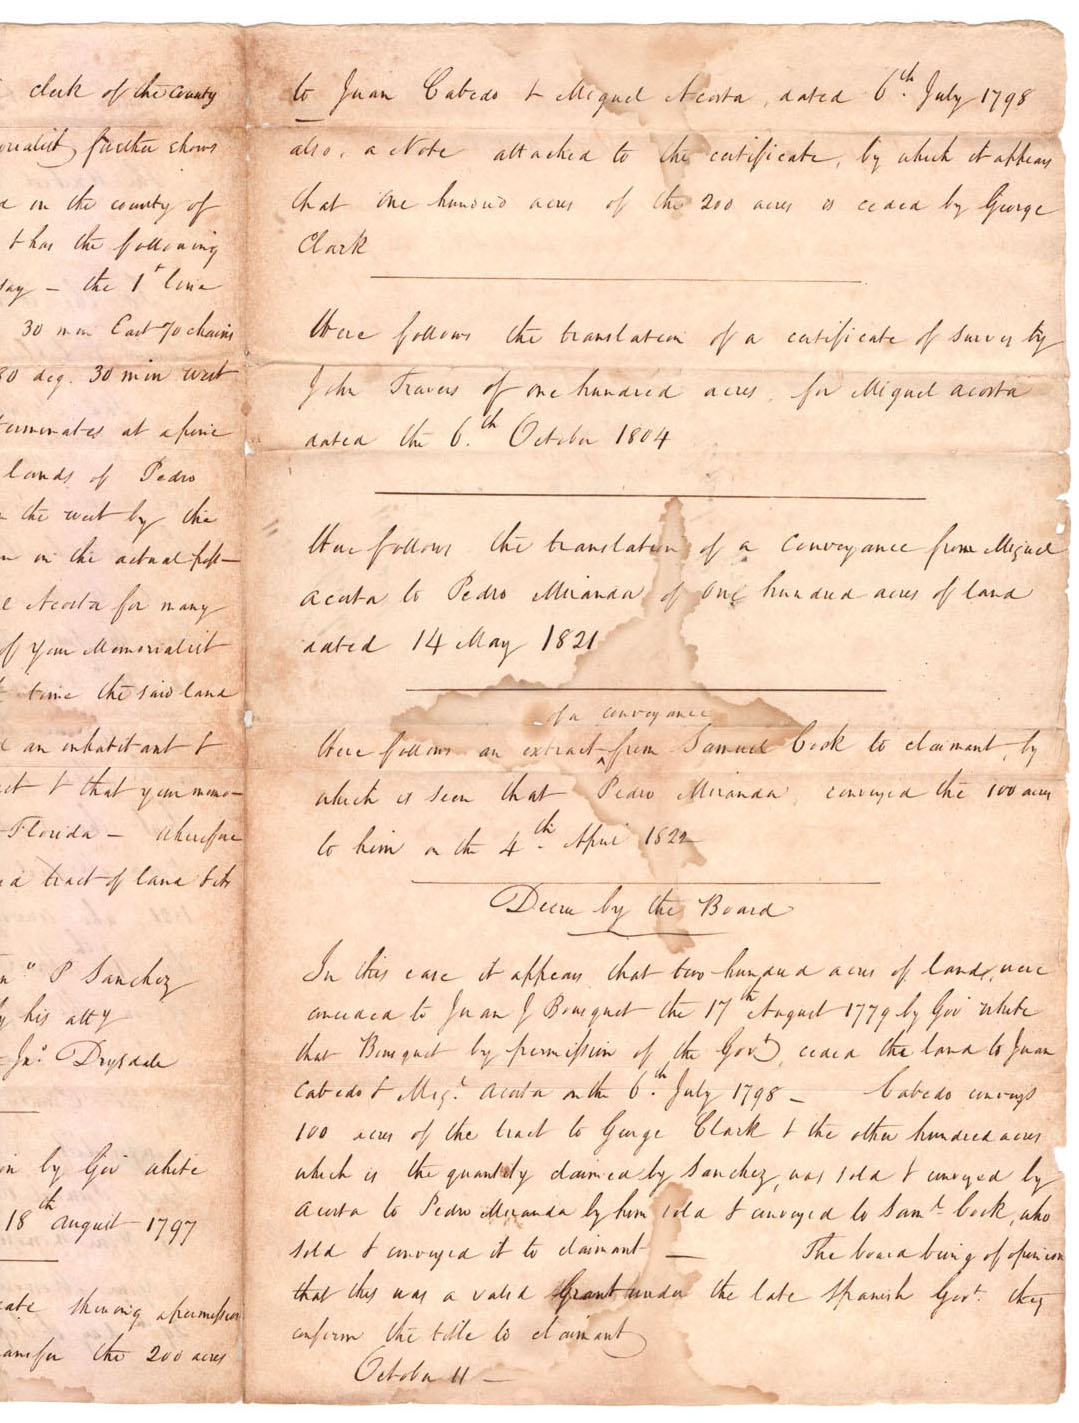 clerk of the county
orialist further shows
d in the county of
& has the following
say – the 1st line
30 min East 70 chains
80 deg. 30 min west
terminates at a pine
lands of Pedro
the west by the
on the actual poss–
Acosta for many
of your Memorialist
time the said land
an inhabitant &
& that your memo–
Florida – wherefore
tract of land &c
P Sanchez
his atty
Jno. Drysdale
by Gov White
18th august 1797
cate shewing a permission
ansfer the 200 acres
to Juan Cabedo & Miguel Acosta, dated 6th. July 1798
also, a Note attached to the certificate, by which it appears
that one hundd acres of the 200 acres is ceded by George
Clark
Here follows the translation of a certificate of survey by
John Travers of one hundred acres, for Miguel acosta
dated the 6th. October 1804
Here follows the translation of a conveyance from Miguel
acosta to Pedro Miranda of one hundred acres of land
dated 14 May 1821
of a conveyance
Here follows an extract ^ from Samuel Cook to claimant, by
which is seen that Pedro Miranda, conveyed the 100 acres
to him on the 4th. April 1822
Decree by the Board
In this case it appears that two hundred acres of land, were
conceded to Juan J Bousquet the 17th August 1779 by Gov White
that Bousquet by permission of the Govt, ceded the land to Juan
Cabedo & Migl. acosta on the 6th. July 1798 – Cabedo conveys
100 acres of the tract to George Clark & the other hundred acres
which is the quantity claimed by Sanchez, was sold & conveyed by
acosta to Pedro Miranda by him sold & conveyed to Saml. Cook, who
sold & conveyed it to claimant — The board being of opinion
that this was a valid Grant under the late Spanish Govt. they
confirm the title to claimant
October 11 –